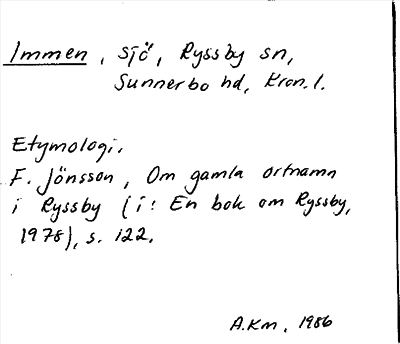 Immen, sjö, Ryssby sn,
Sunnerbo hd, Kron. l.
Etymologi.
F. Jönsson, Om gamla ortnamn
i Ryssby (i: En bok om Ryssby,
1978), s. 122.
A.Km, 1986